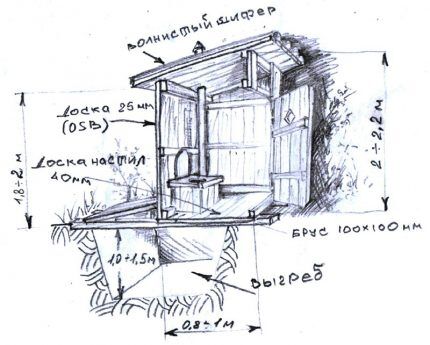 ВОЛНИСТЫЙ ШИФЕР
ДОСКА 25 ММ
(OSB)
ДОСКА НАСТИЛ
40 ММ
1,8÷2 М
2÷2,2 М
БРУС 100×100 ММ
1,0÷1,5М
ВЫГРЕБ
0,8÷1М